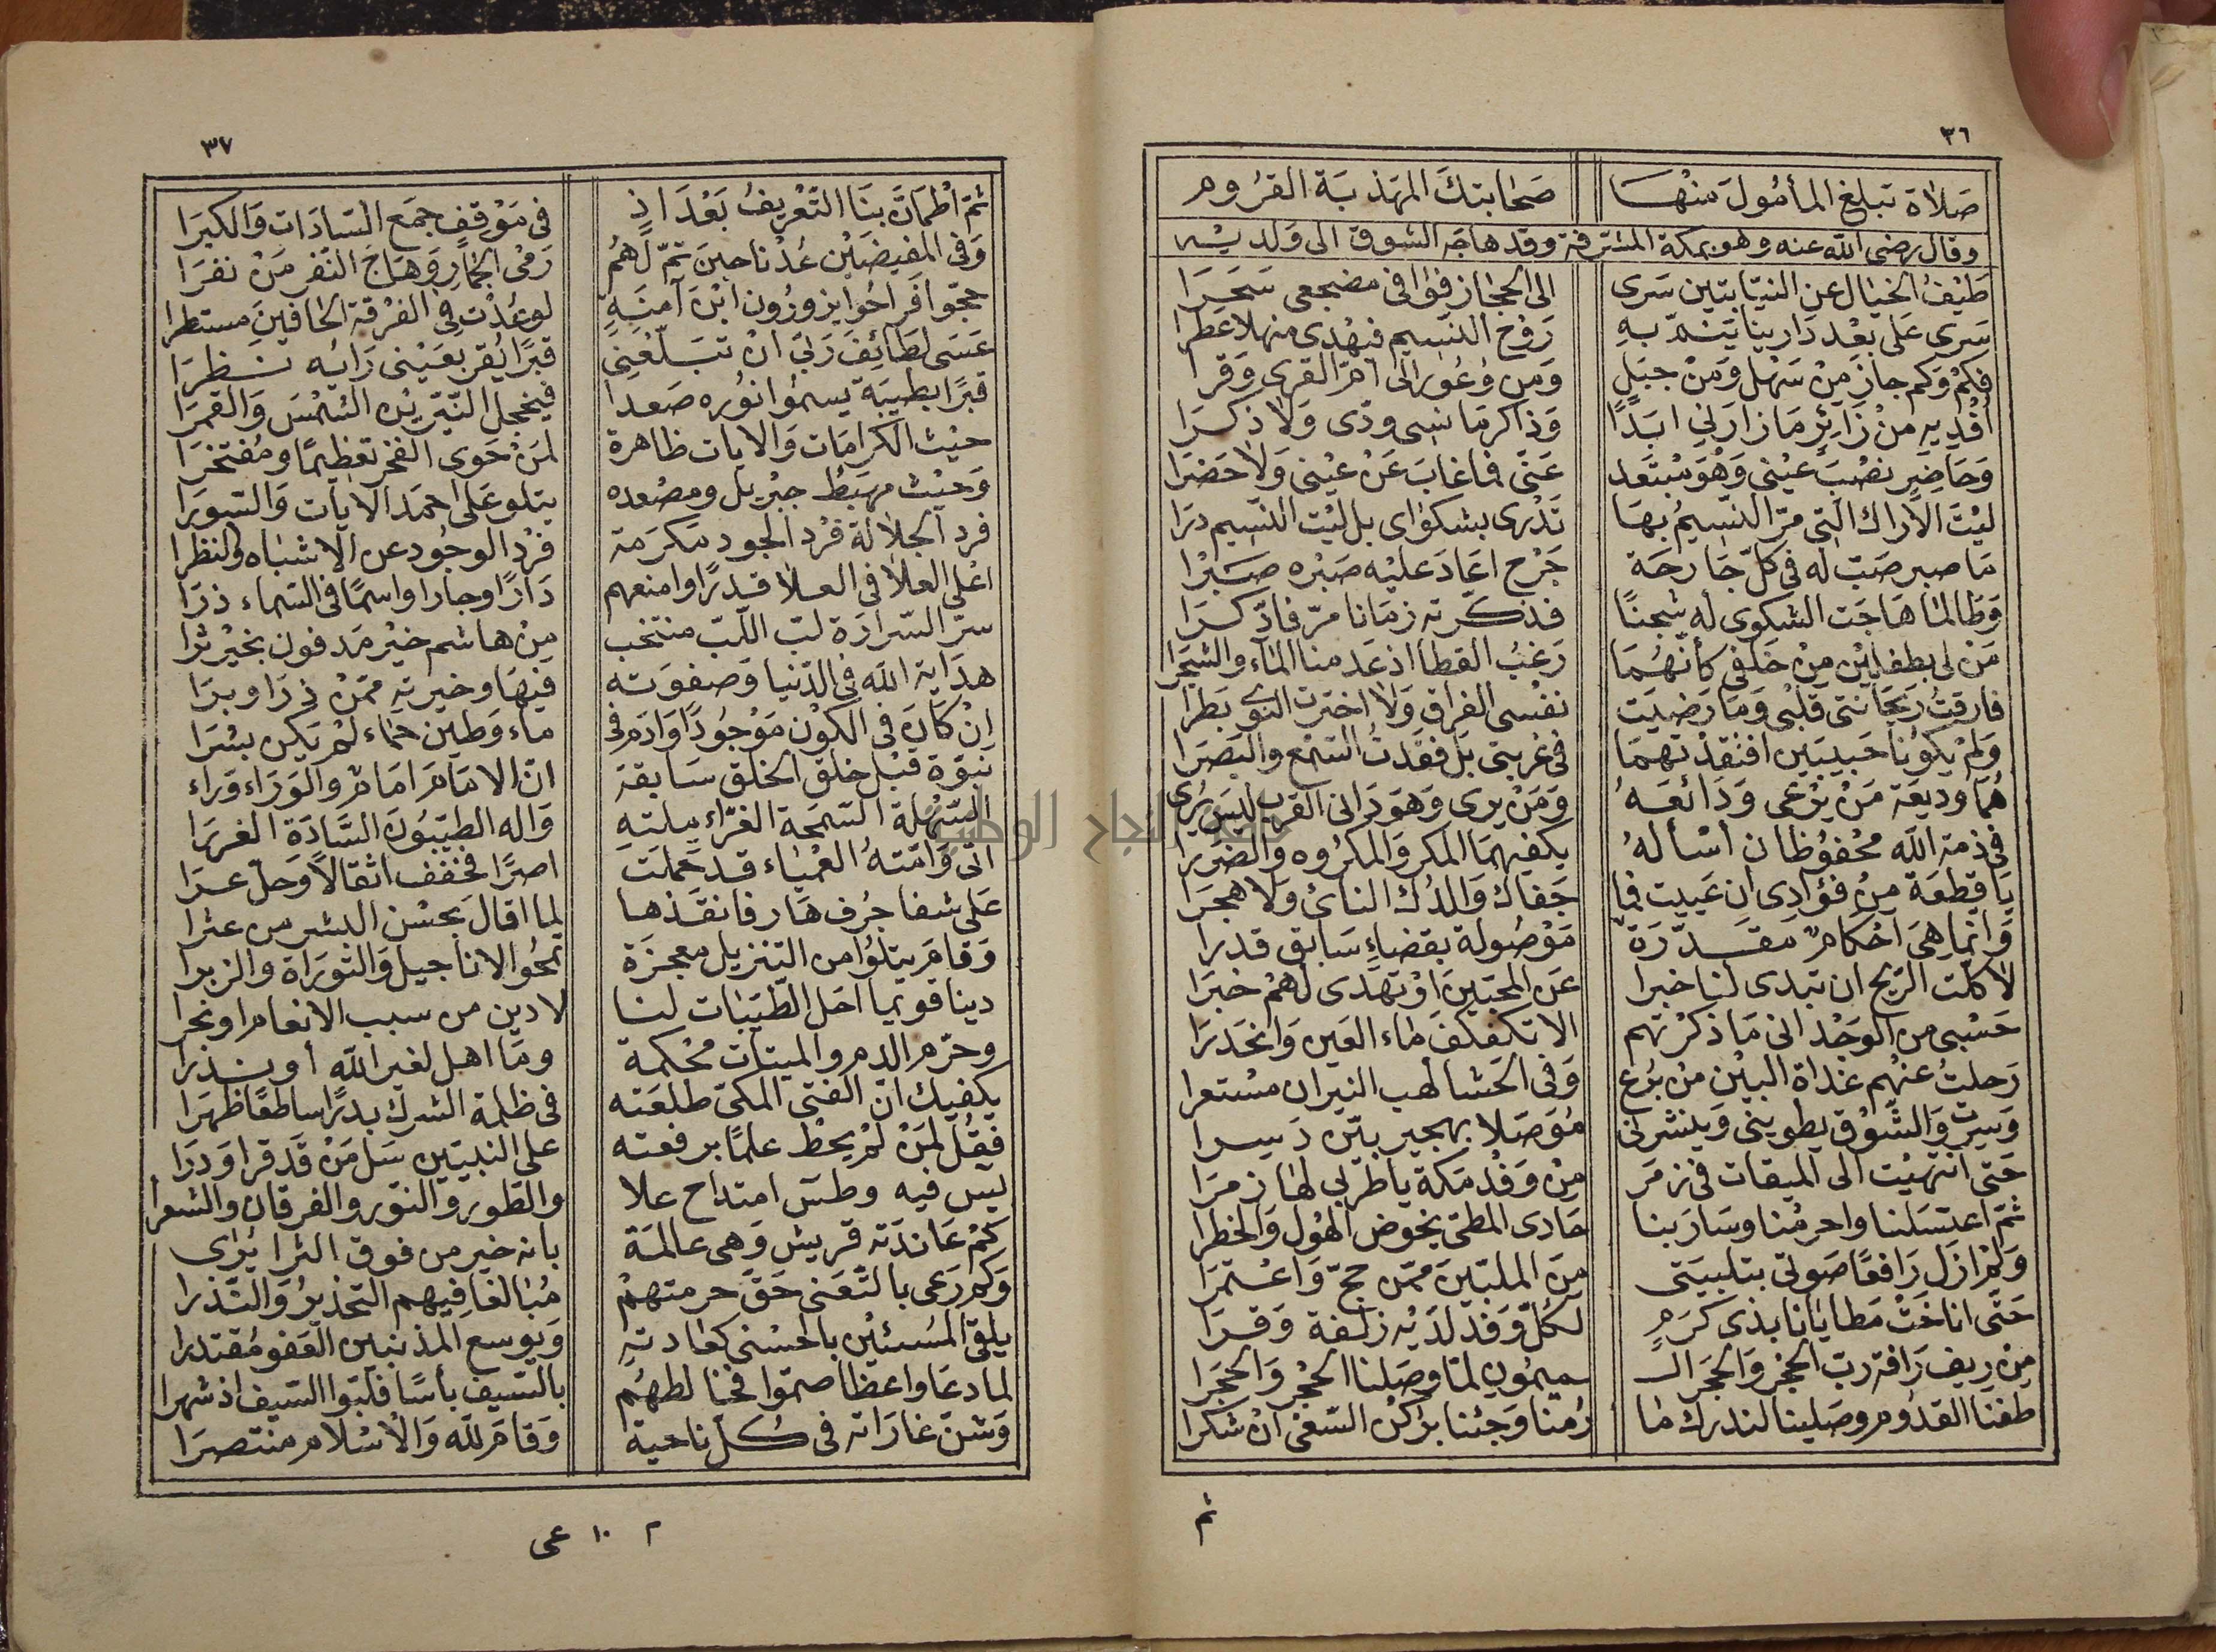 ٣٦
صَلاَة تبلغ المأمُولَ مِنْهَا صَحَابتكَ المهَذبَة القرُوم
وقال رضى الله عنه وهو بمكة المشرفة وقد هاجه الشوق الى ولديه
طَيْفُ الخيَال عن النيابتين سَرى الى الحجاز فوافى مضجعى سَحَرَا
سَرى عَلى بعْد دَارينا يَنمّ بهِ رَوْح النسيم فيهْدى منهلا عَطرَا
فكمْ وَكم جازَ مِنْ سَهْل وَمنْ جبَل وَمن وُعُور الى امّ القرى وَقرَا
أفْديه منْ زَائِرٍ مَا زارَنى ابَدًا وَذاكر مَا نسِى ودّى وَلا ذكَرَا
وَحَاضِرٍ نصْبَ عيْنى وَهْوَ مبْتعَد عَنّى فما غابَ عَنْ عيْنى وَلا حَضرَا
ليْتَ الأَراك التى مرّ النسيمُ بهَا تَدْرى بشكوَاى بل ليْت النسيم درَا
مَا صبر صَبّ له فى كلّ جَارحَة جَرْح اعَادَ عليْه صَبْره صَبرَا
وَطَالما هَاجَت الشكوى له شجنًا فذكّرته زمَانا مرّ فادّكرَا
مَنْ لى بطفلَيْن منْ خَلفى كأنّهُمَا زغبُ القطا اذ عَدمنا الماَء والشجَرا
فارقتُ ريحَانتى قلْبى وَمَا رَضيَت نفْسى الفراق وَلا اخترت النوى بطرَا
وَلمْ يكونا حَبيبَين افتقدتهمَا فى غربتى بَل فقدتُ السّمْع والبَصَرَا
هُمَا وديعَة مَنْ يرْعى وَدَائعَهُ وَمَنْ يرى وَهوَ دَانى القرب ليسَ يُرى
فى ذمة الله محْفوُظان أسْألهُ يكفيهمَا المكر وَالمكرُوه والضرَرا
يَا قطعَة منْ فؤادِى ان عَييت فما جَفاك وَالدُك النائى ولا هجرَا
وَانّما هىَ أحْكام مقَدّرَة مَوْصُولة بقضاءٍ سَابق قدرا
لا كلّت الرّيح ان تبدى لنا خبرا عَن المحبّين اوْ تهْدى لهُمْ خبرَا
حَسْبى من الوَجْد انى مَا ذكرْتهم الا تكفكفَ ماء العَين وَانحَدرَا
رَحلتُ عنْهم غداة البيْن منْ بُرَع وَفى الحَشا لهب النيران مسْتعرا
وَسِرت وَالشّوْق يطوينى وَينشرنى مُوَصّلا بهجير بتّن دَيسرا
حَتى انتهيْت الى الميقات فى زمَر منْ وَفْد مَكة يا طربى لها زمرَا
ثمّ اغتسَلنا واحرمْنا وسَارَ بنا حَادى المطىّ يخوض الهول وَالخطرا
وَلمْ ازل رَافعًا صَوتى بتلبيَتى منَ الملبّينَ ممّن حجّ وَاعْتمَرَا
حَتّى اناخَتْ مَطايَانا بذى كرَمٍ لكُلّ وَفد لدَيْه زلفة وَقرَا
مِن ريف رَافة ربّ الحِجْر وَالحَجَر الـ ـميمُون لمّا وَصَلنا الحِجْر وَالحَجَرا
طفنا القدُوم وصَلينا لندرك مَا رُمنا وَجئنا بركن السّعْى انْ شكرا
ثم
٣٧
ثمّ اطمَأنّ بنَا التعْريفُ بَعْدَ اذٍ فى مَوْقفٍ جمَع السّادَات وَالكبرَا
وَفى المفيضَيْن عُدْنا حينَ تمّ لهُمُ رَمْى الجمارِ وَهاجَ النفر مَنْ نفرَا
حجّوا فراحُوا يزورُون ابْنَ آمنَةٍ لو عُدْت فى الفرْقة الحافينَ مستطرا
عَسَى لطَائِفُ رَبّى انْ تبَلّغنى قبرًا يُقرّ بعَيْنى رَائيه نظرَا
قبرًا بطيبَة يسمُوا نوُره صَعدا فيخجل النّيّريْن الشمْسَ وَالقمرَا
حيْث الكرامَات وَالايات ظاهرة لمَنْ حَوى الفخر تعْظيمًا ومُفتخرَا
وَحيْث مهبَط جبْريل ومصْعده يتلو عَلى احمَد الايَات وَالسّورَا
فرد الجلالة فرْد الجود مكرَمة فرْد الوجُود عن الاشبَاه والنظرا
اعْلى العلا فى العلا قدرًا وامنعهم دَارًا وجارا واسمًا فى السّماء ذرَا
سرّ السّرارَة لبّ اللّبّ منتخب منْ هاشم خيْر مَدفون بخيْر ثرا
هدَاية الله فى الدّنيا وَصفوَته فيهَا وخيرته ممّنْ ذرَا وبرَا
انْ كانَ فى الكوْن مَوْجُودًا وَادَم فى ماء وَطين حمَاء لمْ يَكن بشرَا
نبوّة قبْل خلْق الخلق سَابقة انّ الامَامَ امَام وَالوَرَاء وَراء
السّهْلة السّمحَة الغرّاء ملّته وَاله الطيّبُون السَّادَة الغررا
اتى وَامّته العمْياء قد حملت اصرًا فخفف اثقالاً وَحلّ عرا
عَلى شفا جرُف هَار فانقذها لما اقال بحسْن البشر من عثرا
وَقامَ يتلُوا من التنزيل معجزَة تمْحُو الاناجيل وَالتوراة والزبرا
دينا قويما احَل الطّيّبات لنا لا دين من سبب الانعام او بحرا
وحرّم الدم والميتات محْكمة ومَا اهل لغير الله أو نذرا
يكفيك انّ الفتى المكّى طلعَته فى ظلمة الشرك بدرًا ساطعًا ظهرَا
فقُل لمَنْ لمْ يحُط علمًا برفعته على النبيّين سَل مَنْ قدْ قرا وَدرَا
ليس فيه وطسَ امتداح علا والطور والنّور والفرقان والشعرا
كمْ عَاندَته قريش وَهى عالمة بانه خير من فوق الثرا يُرى
وَكم رَعى بالتّعَنى حَقّ حرمتهمْ مُبالغا فيهم التحْذيرُ وَالنّذرا
يلقى المسيئيْن بالحسْنى كعَادتهِ وَيوسع المذنبين العَفو مُقتدرا
لما دعَا واعظا صمّوا فخالطهُم بالسّيف بأسًا فلبّوا السّيف اذ شهرا
وَشنّ غارَاته فى كُلّ ناحية وَقامَ لله وَالاسْلام منتصرَا
٢ ١٠ عى